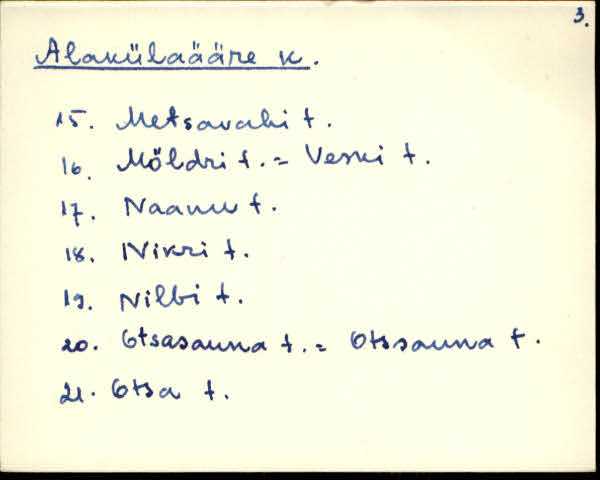 3.
Alakülaääre k.
15. Metsavahi t.
16. Möldri t. = Veski t.
17. Naanu t.
18. Nikri t.
19. Nilbi t.
20. Otsasauna t. = Otssauna t.
21. Otsa t.